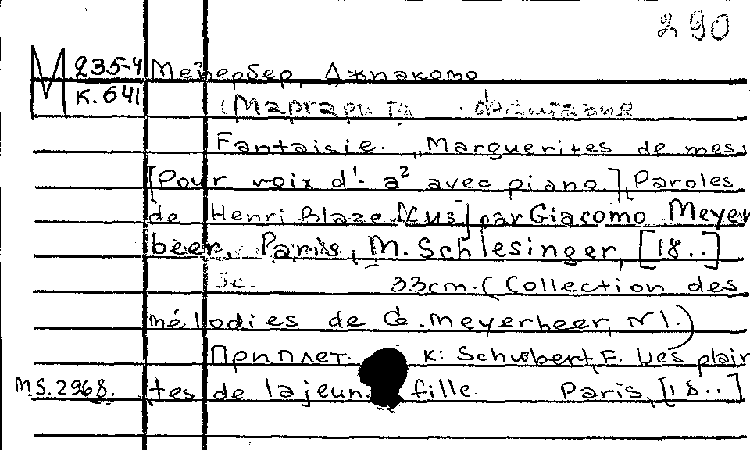 290
М 235-4 Мейербер, Джакомо
К.641 (Маргарита. фантазия
Fantaisie. „Marguerites de mess
[Pour voix d'. a² avec piano.] Paroles
de Henri Blaze [Mus] par Giacomo Meyer
beer, Paris, M. Schlesinger, [18..]
3c. 33cm. (Collection des
mélodies de G. Meyerbeer, N1.)
Приплет. к: Schubert, F. Les plain
MS.2968. tes de la jeune fille. Paris, [18..]